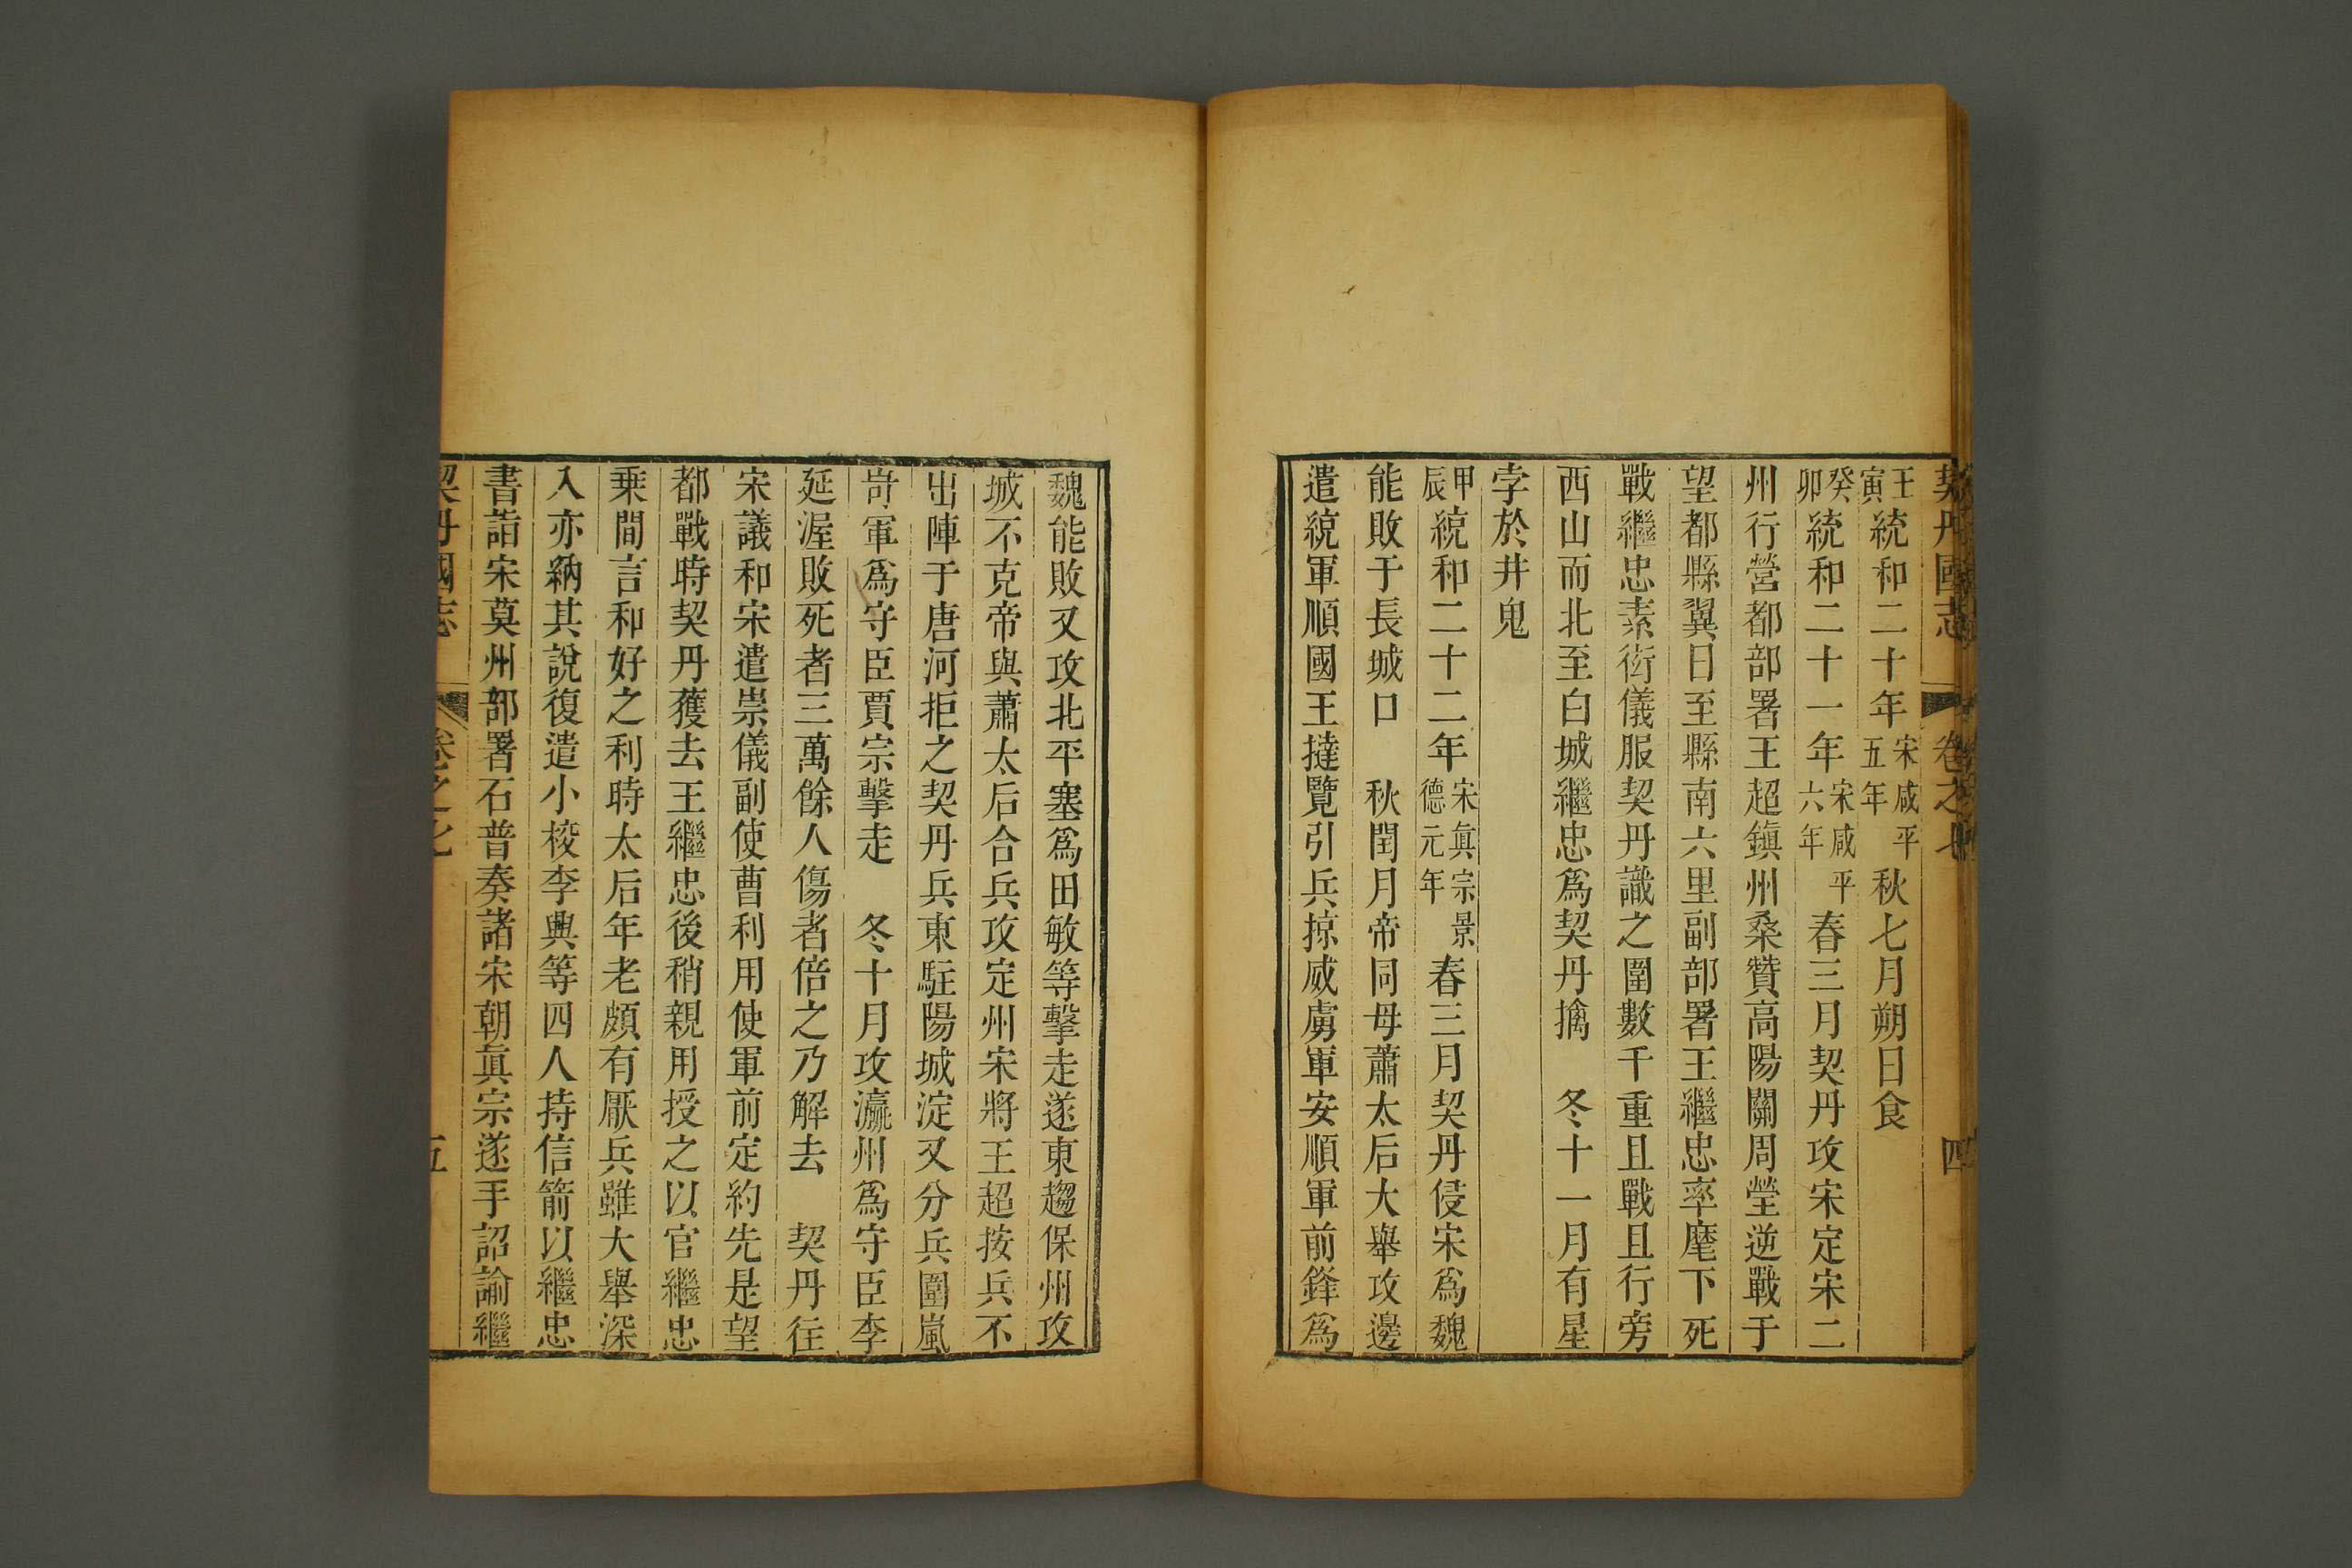 契丹國志 卷之七 四
壬寅統和二十年宋咸平五年 秋七月朔日食
癸卯統和二十一年宋咸平六年 春三月契丹攻宋定宋二
州行營都部署王超鎮州桑贊高陽關周瑩逆戰于
望都縣翼日至縣南六里副部署王繼忠率麾下死
戰繼忠素衒儀服契丹識之圍數千重且戰且行旁
西山而北至白城繼忠爲契丹擒 冬十一月有星
孛於井鬼
甲辰統和二十二年宋眞宗景德元年 春三月契丹侵宋爲魏
能敗于長城口 秋閏月帝同母蕭太后大舉攻邊
遣統軍順國王撻覽引兵掠威虜軍安順軍前鋒爲
魏能敗又攻北平塞爲田敏等擊走遂東趨保州攻
城不克帝與蕭太后合兵攻定州宋將王超按兵不
出陣于唐河拒之契丹兵東駐陽城淀又分兵圍嵐
岢軍爲守臣賈宗擊走 冬十月攻瀛州爲守臣李
延渥敗死者三萬餘人傷者倍之乃解去 契丹往
宋議和宋遣崇儀副使曹利用使軍前定約先是望
都戰時契丹獲去王繼忠後稍親用授之以官繼忠
乗間言和好之利時太后年老頗有厭兵雖大舉深
入亦納其說復遣小校李興等四人持信箭以繼忠
書詣宋莫州部署石普奏諸宋朝眞宗遂手詔諭繼
契丹國志 卷之七 五